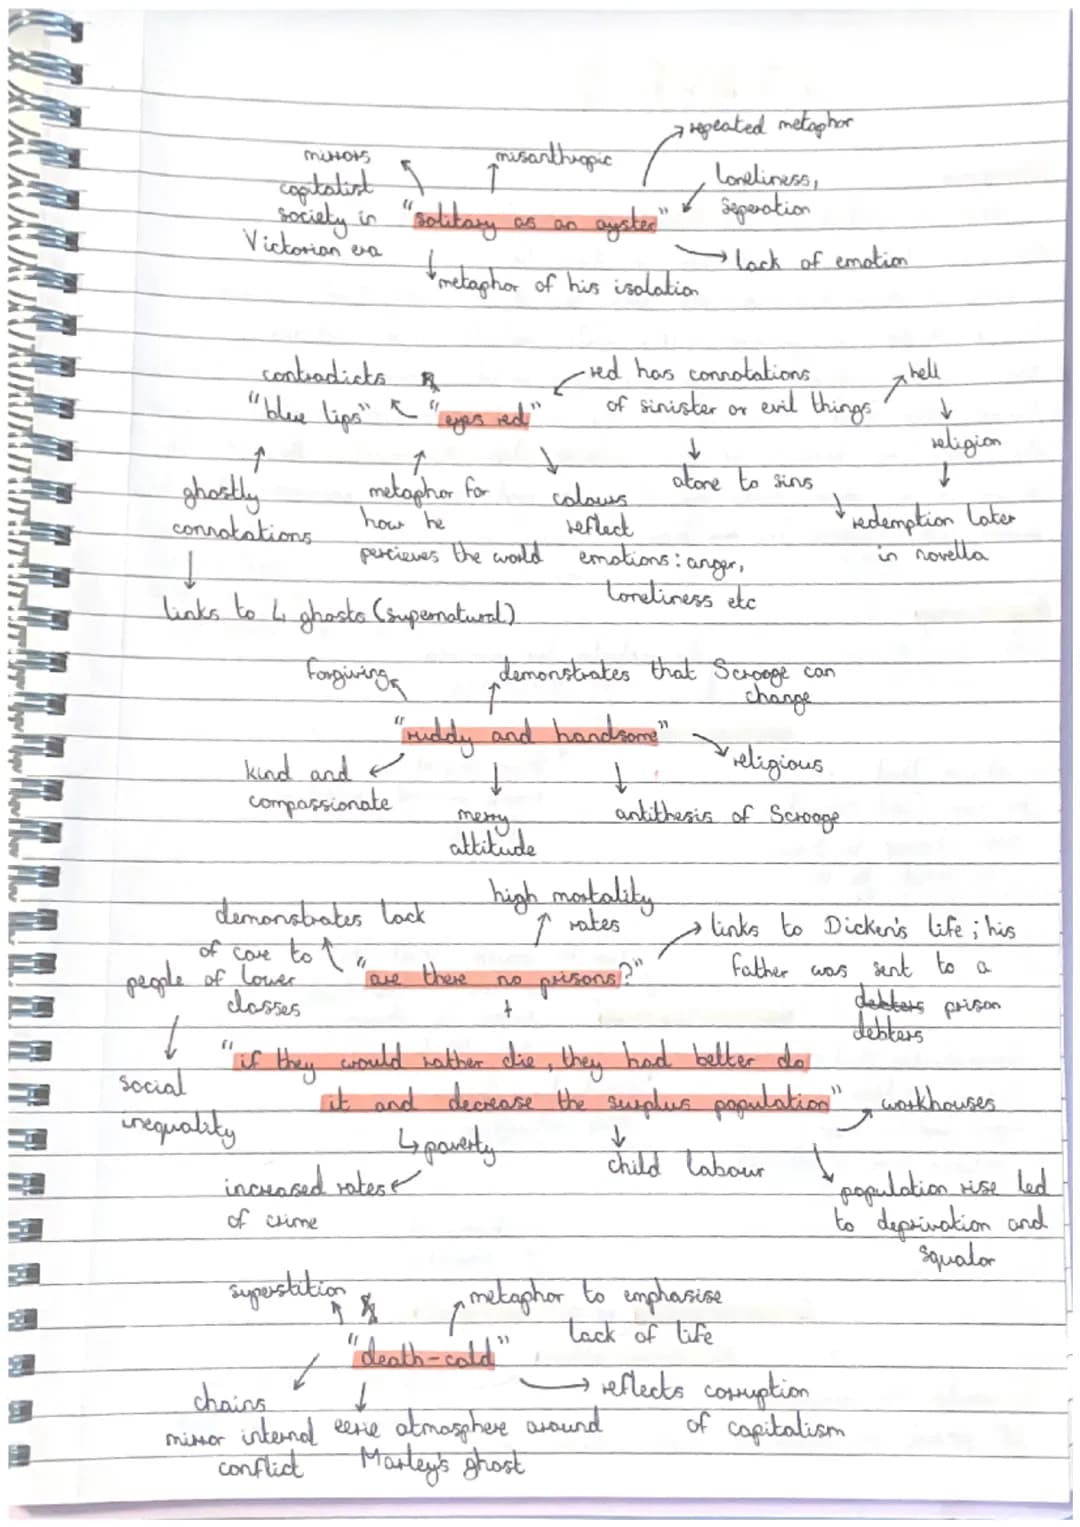 repeated metaphor
mirrors
capitalist
society in
Victorian era
misanthropic
loneliness,
seperation
"solitary as an oyster"
lack of emotion
metaphor of his isolation
contradicts
"blue lips"
"eyes red"
red has connotations
of sinister or evil things
hell
religion
redemption later
in novella
atone to sins
ghostly
connotations
metaphor for
how he
percieves the world
colours
reflect
emotions: anger,
loneliness etc
links to 4 ghosts (supernatural)
forgiving
demonstrates that Scrooge can
change
"ruddy and handsome"
kind and
compassionate
merry
attitude
antithesis of Scrooge
religious
demonstrates lack
of care to
people of lower
classes
high mortality
rates
links to Dicken's life; his
father was sent to a
debters prison
debters
"are there no prisons?"
+
"if they would rather die, they had better do
it and decrease the surplus population"
social
inequality
poverty
increased rates
of crime
child labour
workhouses
population rise led
to deprivation and
squalor
superstition
metaphor to emphasise
lack of life
"death-cold"
chains
mirror internal
conflict
eerie atmosphere around
Marley's ghost
reflects corruption
of capitalism